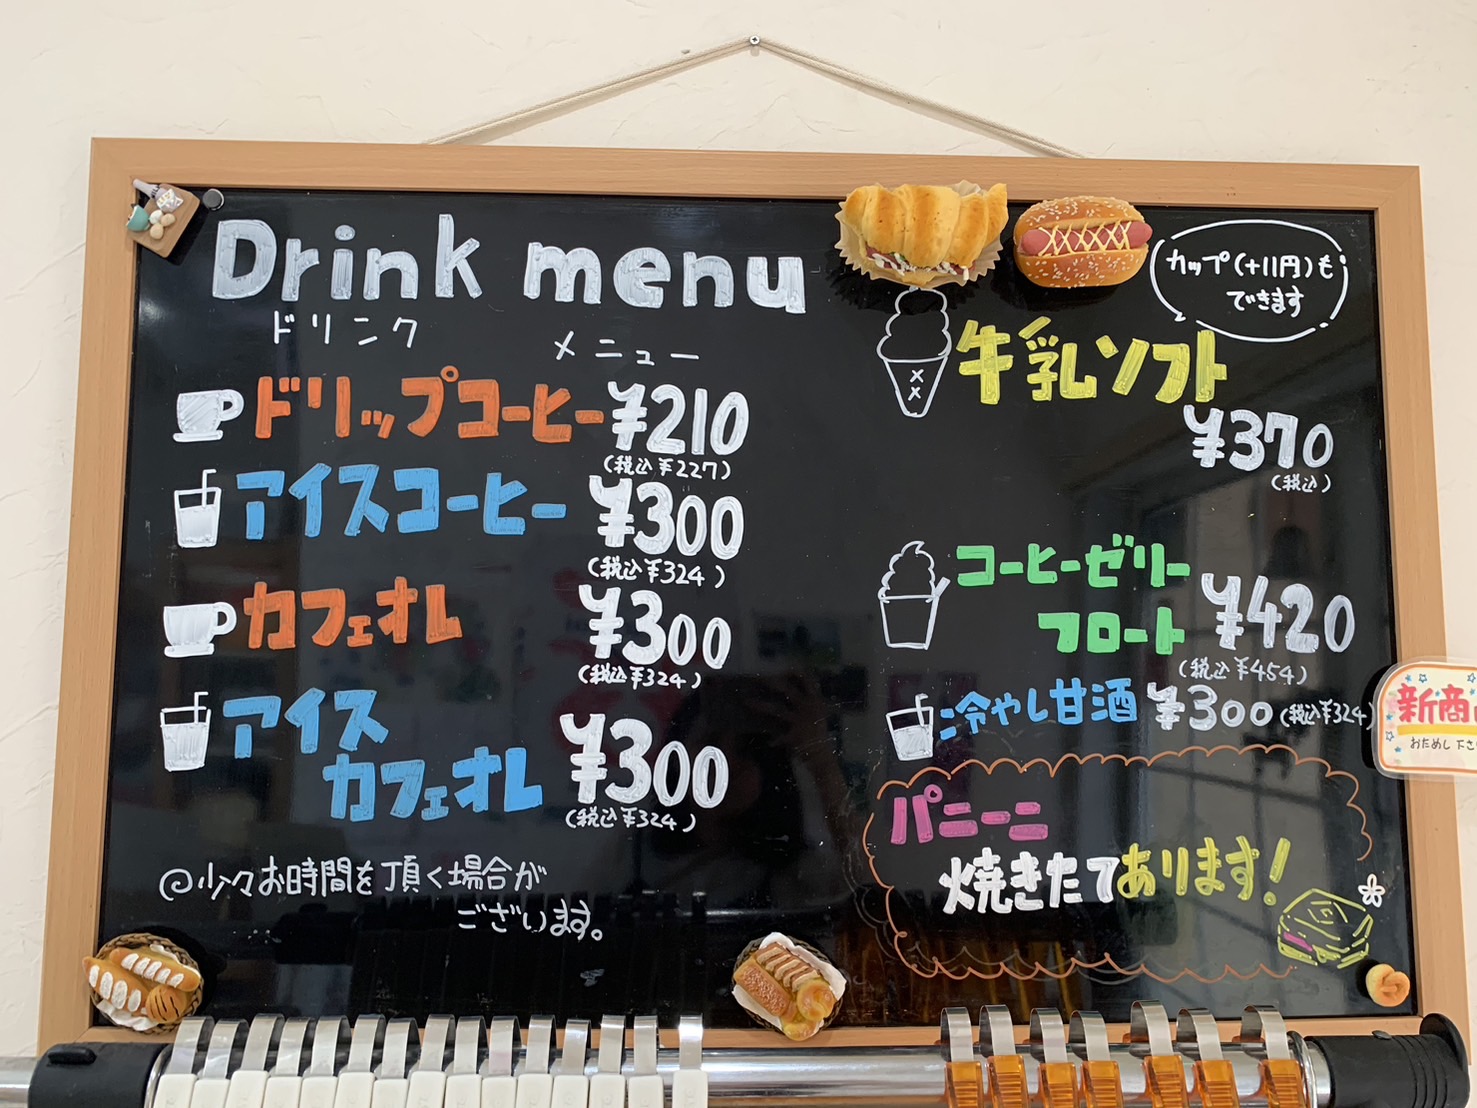 Drink menu
ドリンク メニュー
ドリップコーヒー ¥210
(税込¥227)
アイスコーヒー ¥300
(税込¥324)
カフェオレ ¥300
(税込¥324)
アイス
カフェオレ ¥300
(税込¥324)
◎少々お時間を頂く場合が
ございます。
カップ(+11円)も
できます
牛乳ソフト
¥370
(税込)
コーヒーゼリー
フロート ¥420
(税込¥454)
冷やし甘酒 ¥300(税込¥324)
新商
おためし下さ
パニーニ
焼きたてあります!